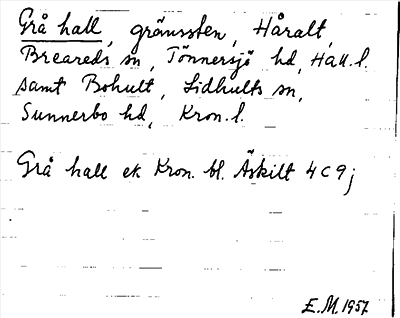 Grå hall, gränssten, Håralt,
Breareds sn, Tönnersjö hd, Hall. l.
samt Bohult, Lidhults sn,
Sunnerbo hd, Kron. l.
Grå hall ek Kron. bl. Äskilt 4 C 9;
E. M. 1957